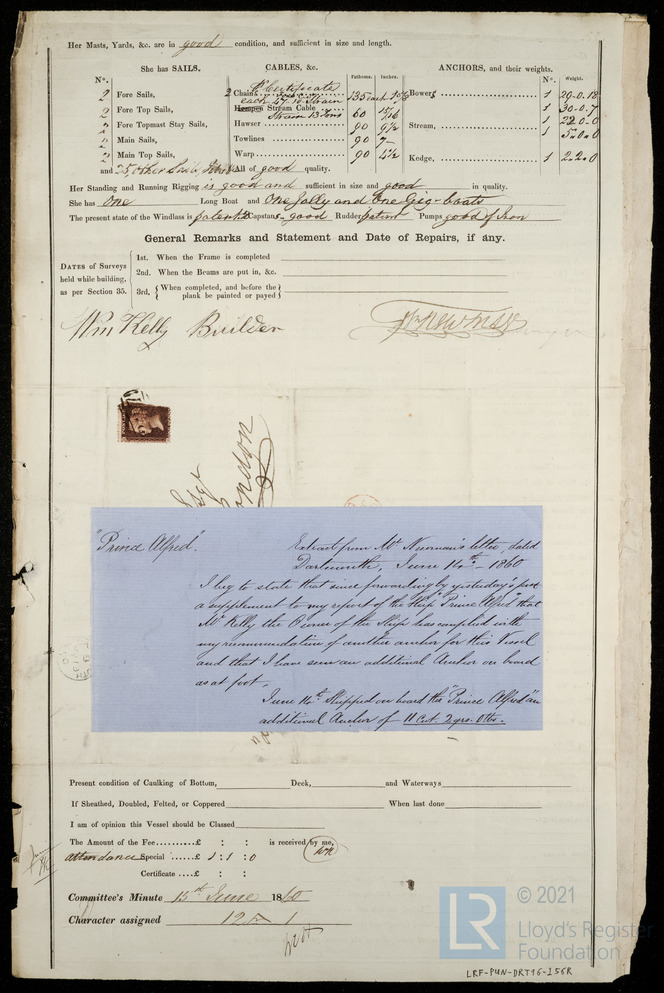 Her Masts, Yards, &c. are in good condition, and sufficient in size and length.
She has SAILS.
N°.
2 Fore Sails,
2 Fore Top Sails,
2 Fore Topmast Stay Sails,
2 Main Sails,
2 Main Top Sails,
and 25 other Sails
CABLES, &c.
Fathoms. Inches.
Certificate
2 Chain 135 each
each 47.10 Strain
Hempen Stream Cable 60
Strain 13 Tons
Hawser 90 9½
Towlines 90 7
Warp 90 4½
All of good quality.
ANCHORS, and their weights.
N°. Weight.
Bowers 1 29.0.18
1 30.0.7
Stream, 1 22.0.0
1 5.0.0
Kedge, 1 2.2.0
Her Standing and Running Rigging is good and sufficient in size and good in quality.
She has One Long Boat and One Jolly and One Gig boats
The present state of the Windlass is patent Capstan good Rudder patent Pumps good of Iron
General Remarks and Statement and Date of Repairs, if any.
DATES of Surveys held while building, as per Section 35.
1st. When the Frame is completed
2nd. When the Beams are put in, &c.
3rd. When completed, and before the plank be painted or payed
Wm Kelly Builder
Esqr
London
"Prince Alfred".
Extract from Mr Newman's letter, dated
Dartmouth, June 14th 1860
I beg to state that since forwarding by yesterday's post
a supplement to my report of the Ship "Prince Alfred" that
Mr Kelly the Owner of the Ship has complied with
my recommendation of another anchor for this Vessel
and that I have seen an additional Anchor on board
as at foot.
June 14th Shipped on board the "Prince Alfred" an
additional Anchor of 11 Cwt. 2 qrs. 0 lbs.
Present condition of Caulking of Bottom, Deck, and Waterways
If Sheathed, Doubled, Felted, or Coppered When last done
I am of opinion this Vessel should be Classed
The Amount of the Fee..........£ : : is received by me,
attendance Special ......£ 1 : 1 : 0
Certificate ....£ : :
Committee's Minute 15th June 1860
Character assigned 12 A 1
© 2021
LR Lloyd's Register
Foundation
LRF-PUN-DRT96-156R